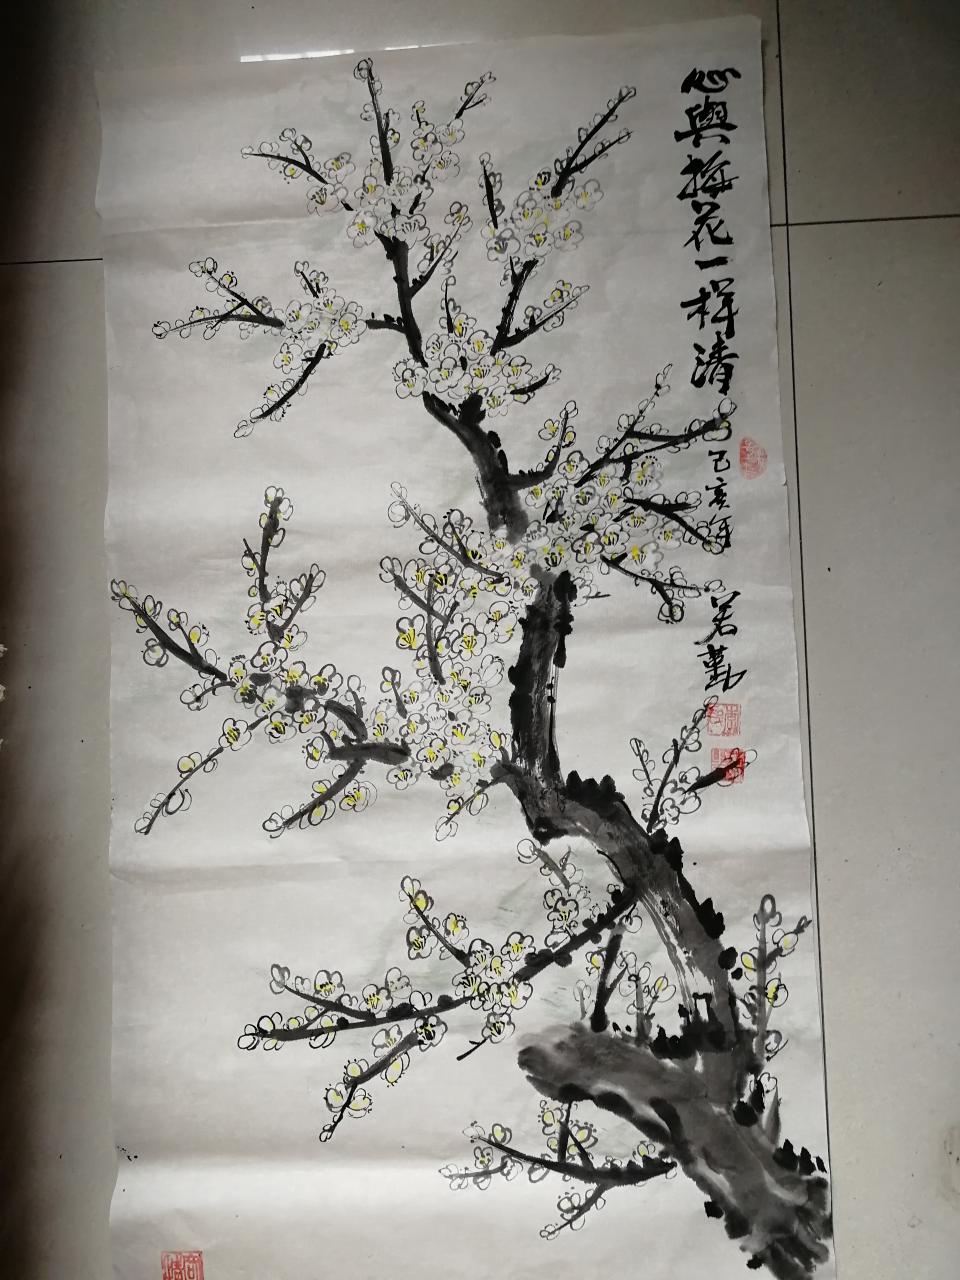 心與梅花一样清
己亥年 若勤